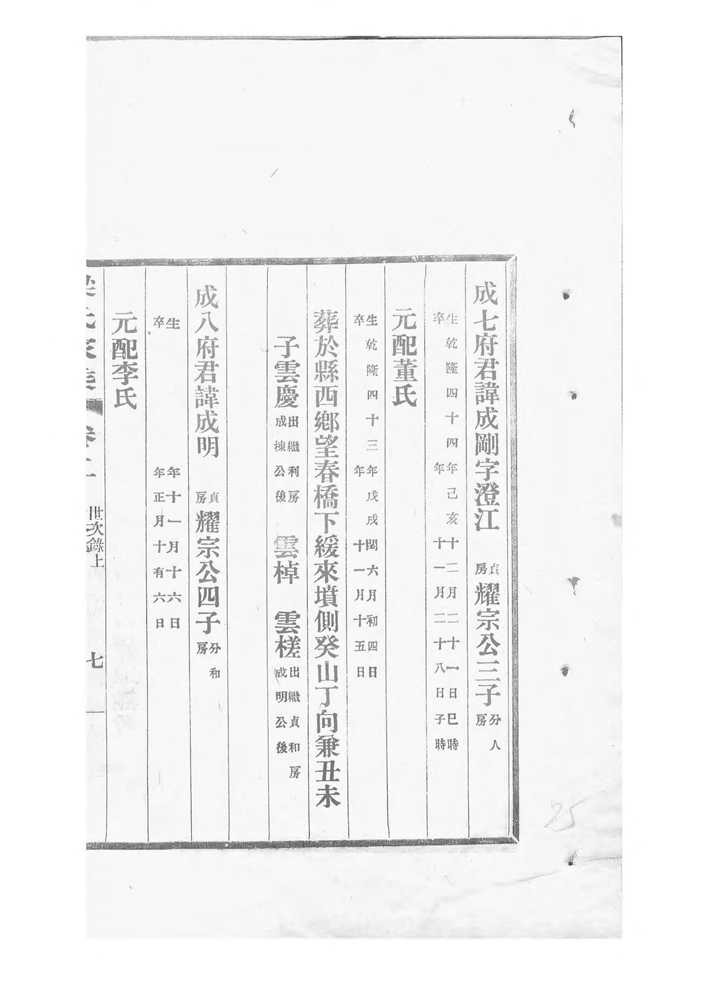 成七府君諱成剛字澄江 貞房 耀宗公三子 分人房
生乾隆四十四年己亥十二月二十一日巳時
卒 年 十一月二十八日子時
元配董氏
生乾隆四十三年戊戌閏六月初四日
卒 年 十一月十五日
葬於縣西鄉望春橋下緩來墳側癸山丁向兼丑未
子雲慶 出繼利房成棟公後 雲棹 雲槎 出繼貞和房成明公後
成八府君諱成明 貞房 耀宗公四子 分和房
生 年十一月十六日
卒 年正月十有六日
元配李氏
世次錄上 七
25